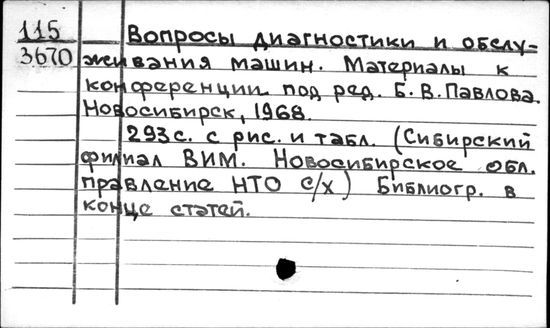 115
3670
Вопросы диагностики и обслу-
живания машин. Материалы к
конференции под ред. Б. В. Павлова.
Новосибирск, 1968.
293 с. с рис. и табл. (Сибирский
филиал ВИМ. Новосибирское обл.
правление НТО с/х) Библиогр. в
конце статей.